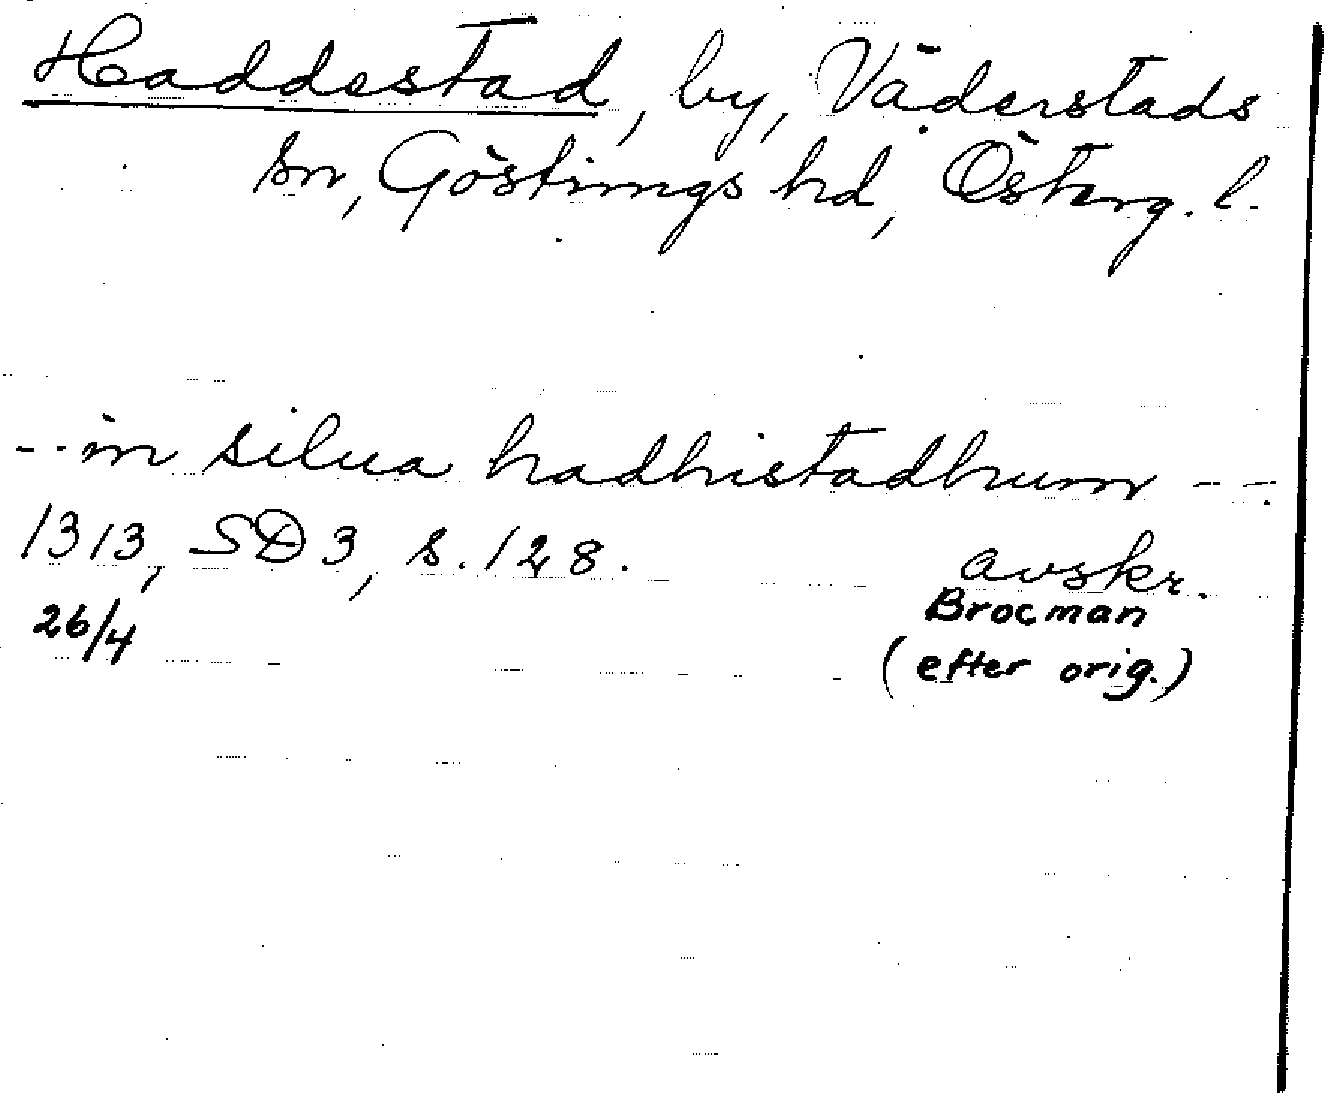 Haddestad, by, Väderstads
sn, Göstrings hd, Österg. l.
-- in silua hadhistadhum --
1313, SD 3, s. 128. avskr.
26/4 Brocman
(efter orig.)